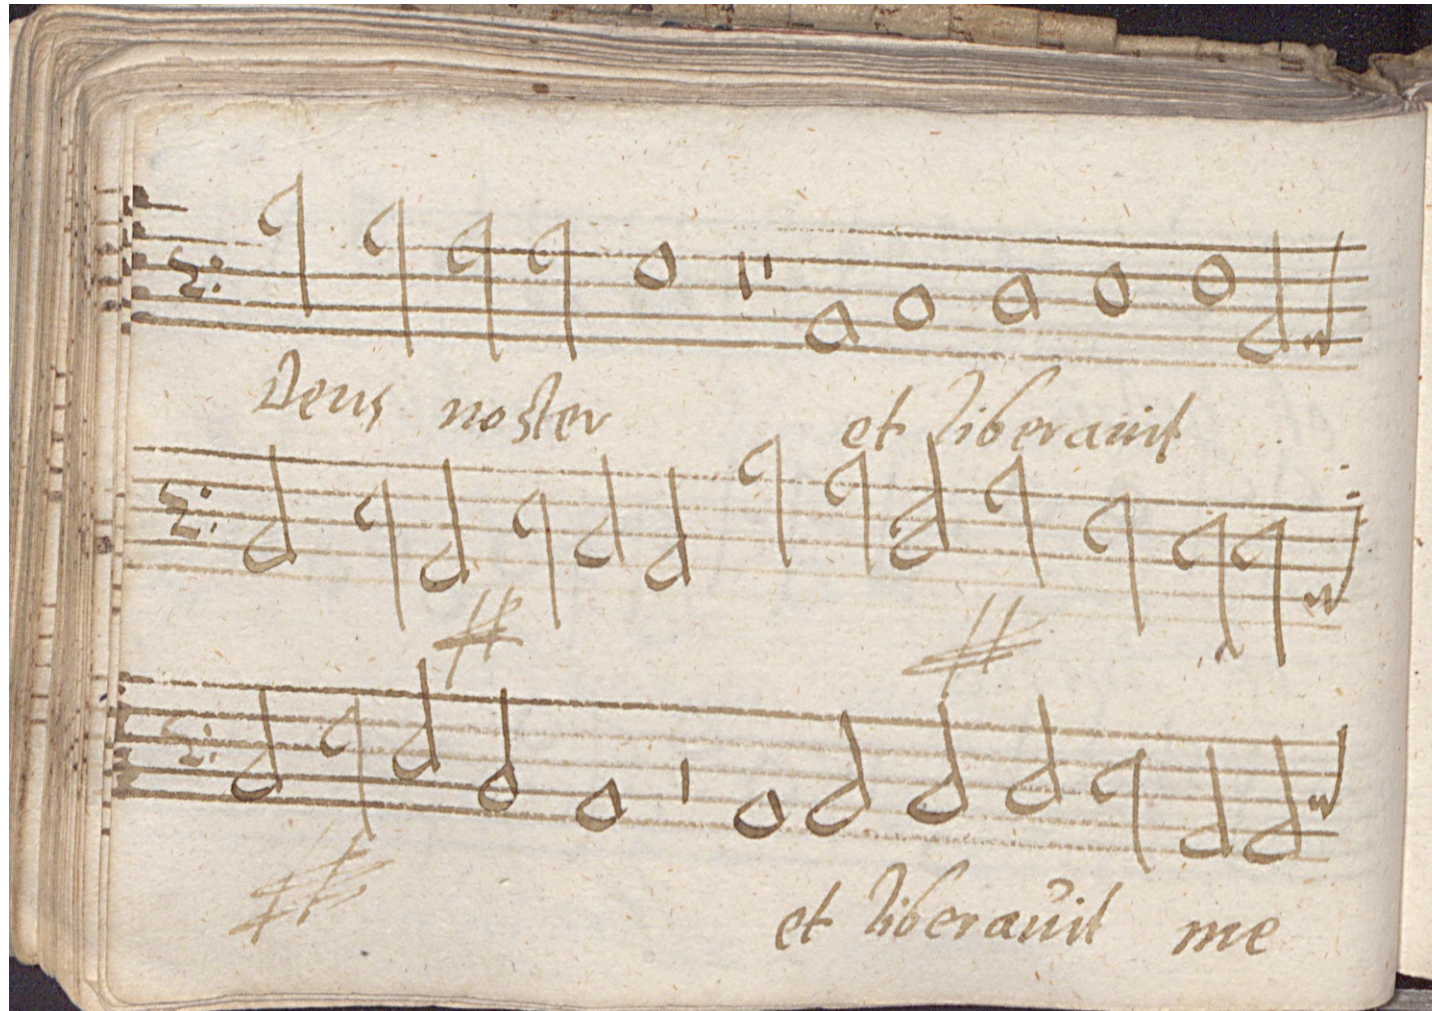 Deus noster et liberauit
et liberauit me